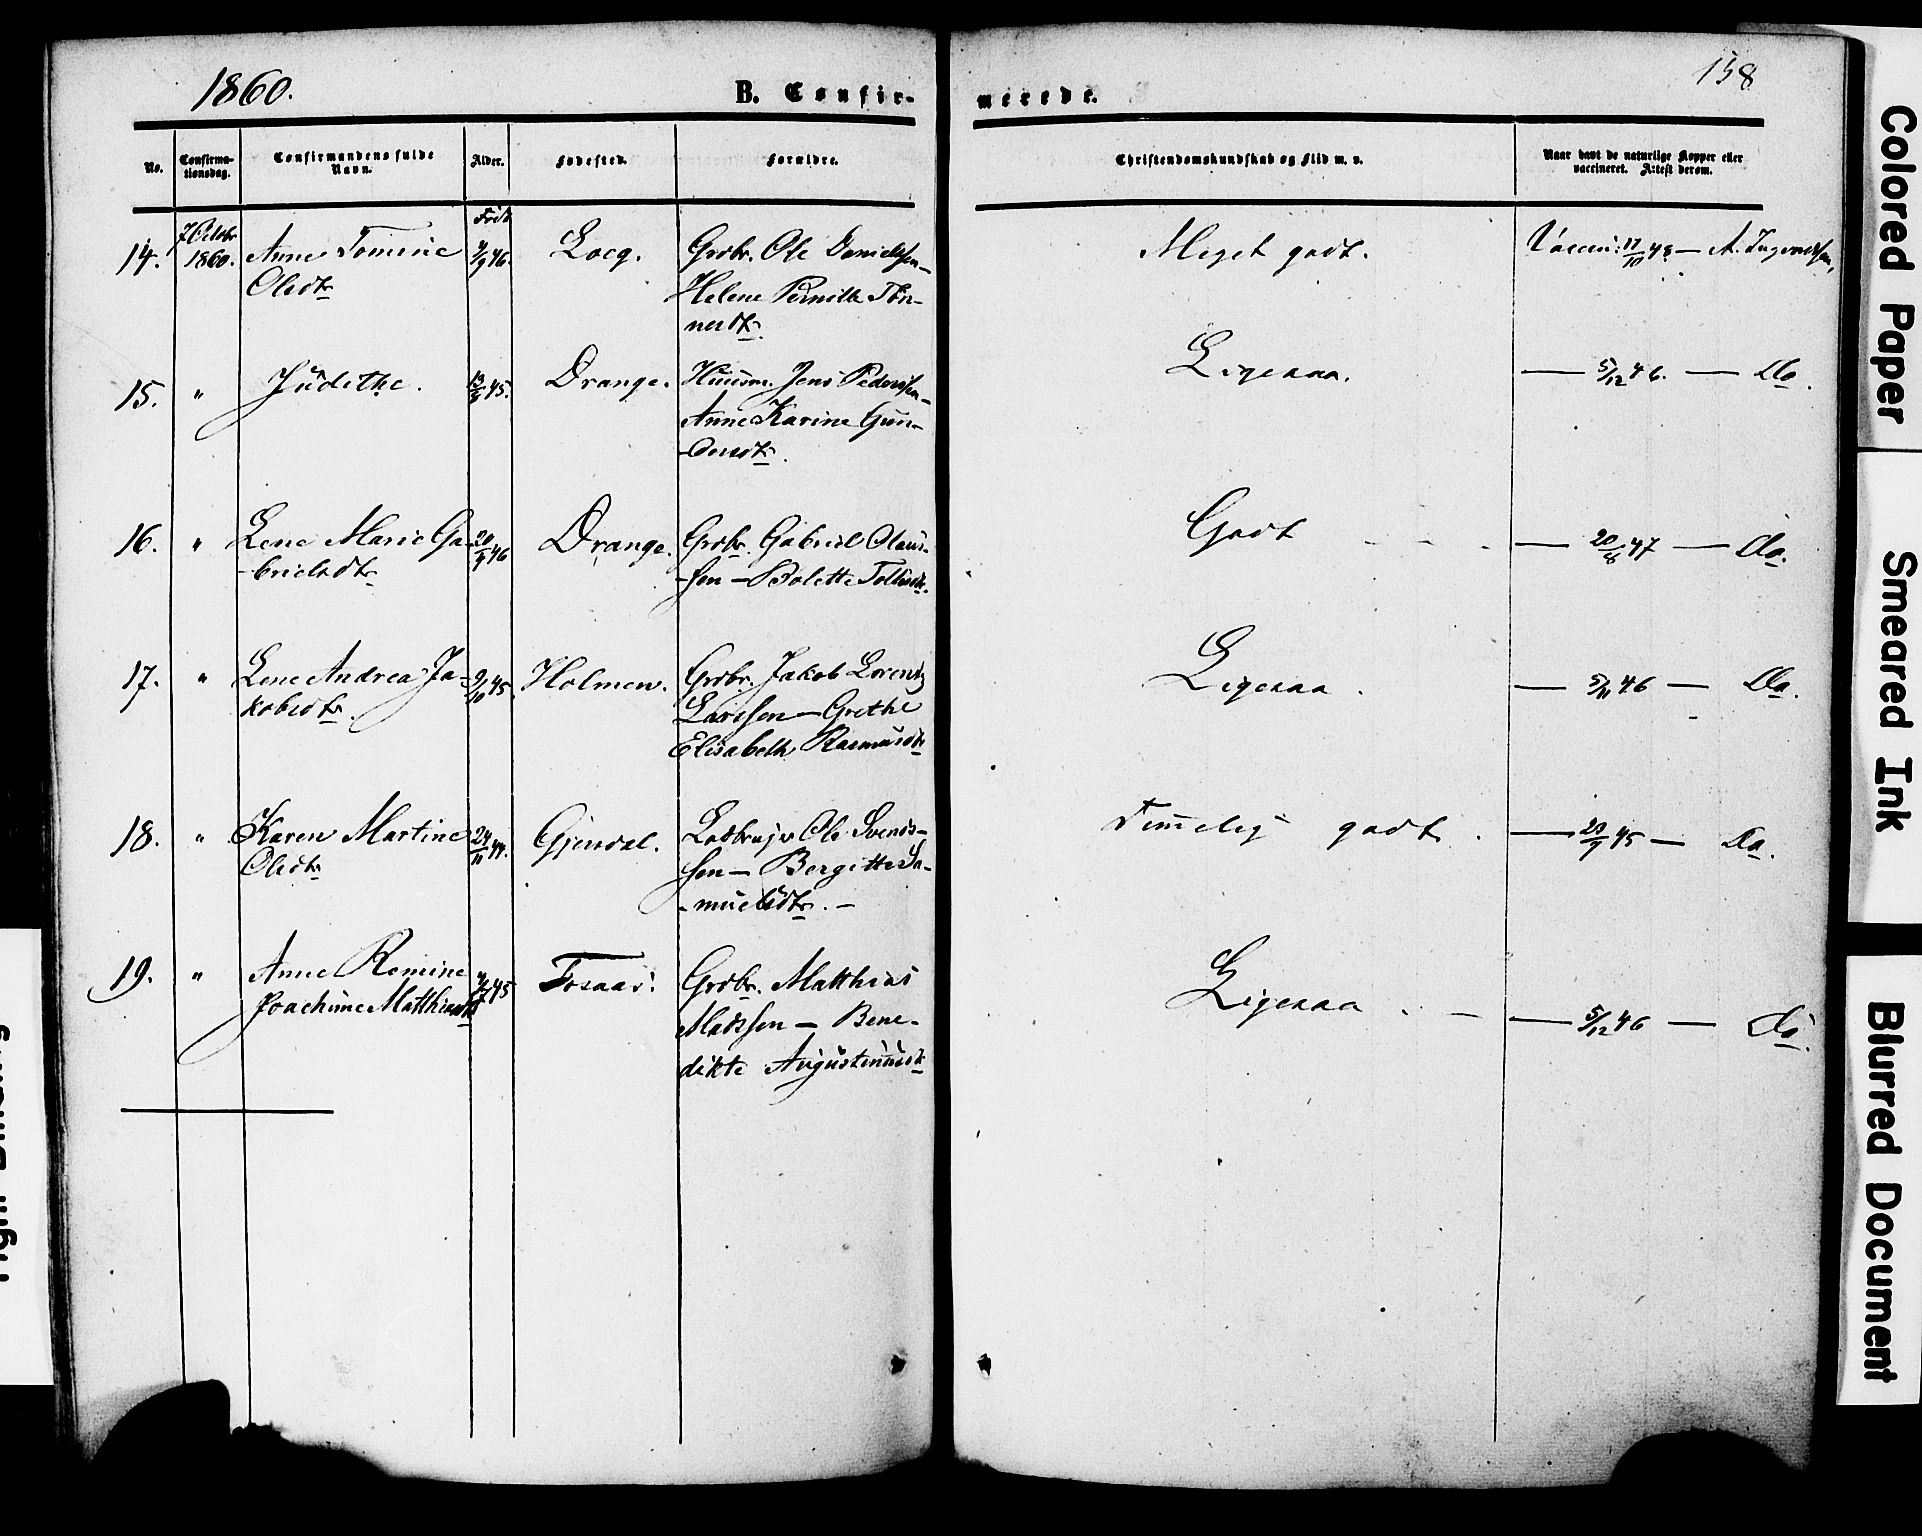 1860.
B. Confirmerede.
158
No.
Confirmationsdag.
Confirmandens fulde Navn.
Alder.
Fødested.
Forældre.
Christendomskundskab og Flid m. v.
Naar havt de naturlige Kopper eller vaccineret. Attest derom.
14.
7 Octobr
1860.
Anne Tomine
Olsdtr
Født
46.
Loeg.
Grdbr. Ole Danielsen –
Helene Pernille Tön-
nesdtr.
Meget godt.
Vaccin: 17/10 48 – A. Ingvaldsen,
15.
"
Judithe.
45.
Drange.
Huusm. Jens Pedersen –
Anne Karine Gun-
-dersdtr.
Ligesaa.
— 5/12 46. — Do.
16.
"
Lene Marie Ga-
-brielsdtr
46
Drange.
Grdbr. Gabriel Olaus-
-sen – Bolette Tollisdtr.
Godt
— 20/6 47 — Do.
17.
"
Lene Andrea Ja-
kobsdtr.
9/10 45.
Holmen.
Grdbr. Jakob Lorentz
Larssen – Grethe
Elisabeth Rasmusdtr
Ligesaa.
— 5/11 46 — Do.
18.
"
Karen Martine
Olsdtr
24/11 44.
Gjervol.
Ole Svends-
sen – Bergitte Sa-
-muelsdtr. –
Temmelig godt.
— 45 — Do.
19.
"
Anne Romine
Joachime Matthiasdtr
45
Fosaas.
Grdbr. Matthias
Madssen – Bene-
dikte Augustinusdtr
Ligesaa. –
— 5/12 46 — Do.
Colored Paper
Smeared Ink
Blurred Document